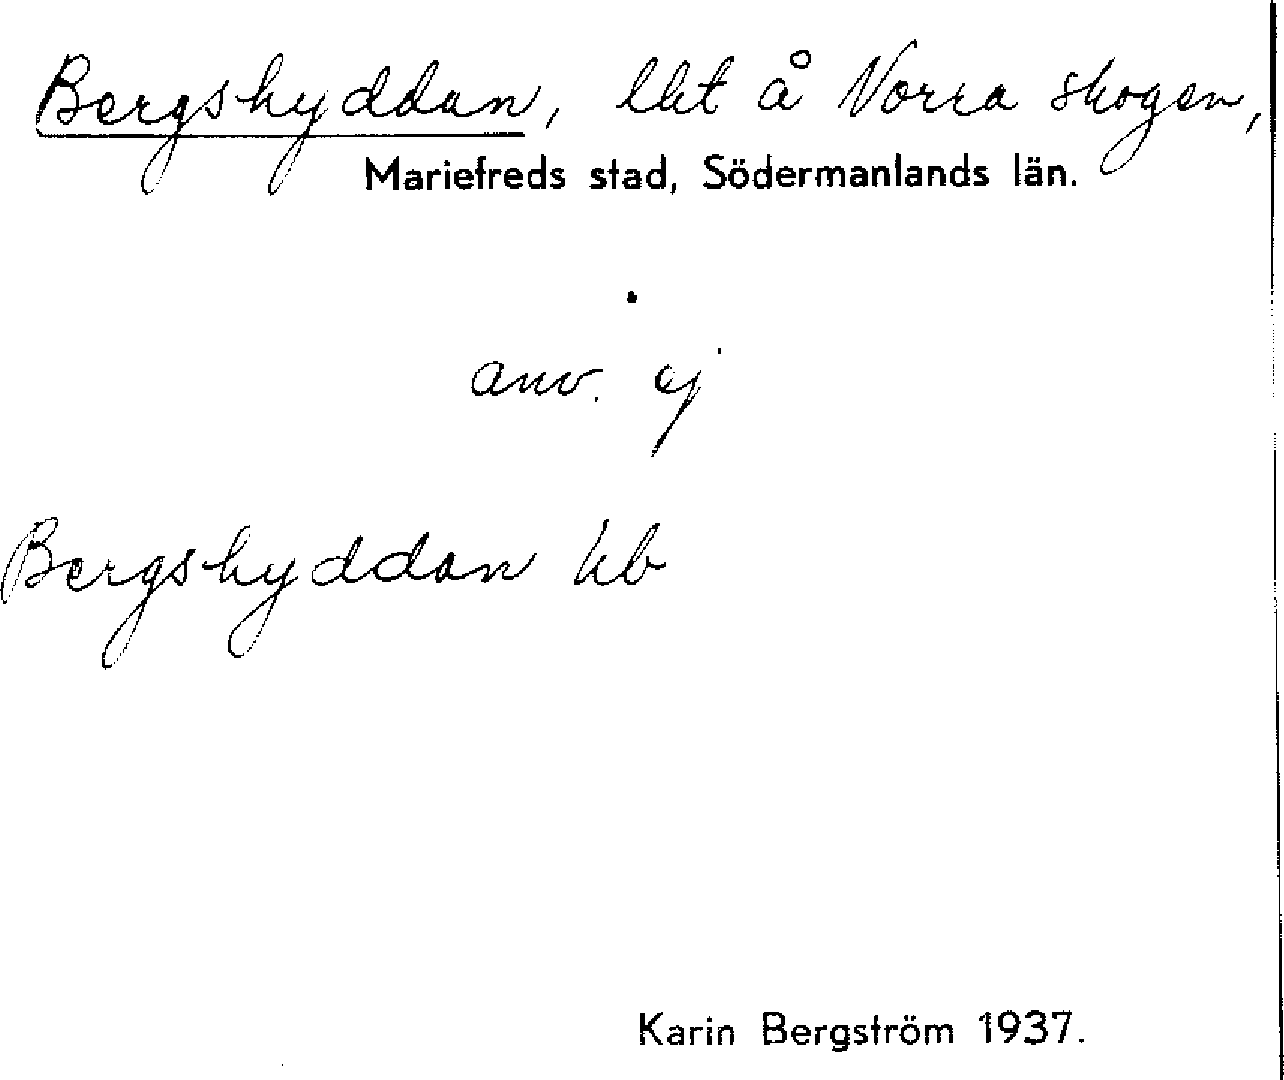 Bergshyddan, lht å Norra skogen,
Mariefreds stad, Södermanlands län.
anv. ej
Bergshyddan kb
Karin Bergström 1937.